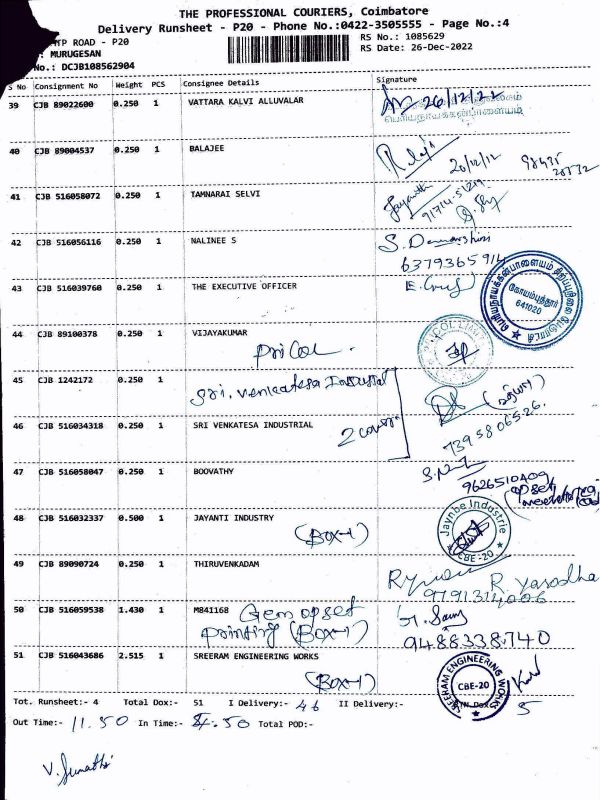 THE PROFESSIONAL COURIERS, Coimbatore
Delivery Runsheet - P20 - Phone No.:0422-3505555 - Page No.:4
TP ROAD - P20
RS No.: 1085629
: MURUGESAN
RS Date: 26-Dec-2022
No.: DCJB108562904
S No Consignment No Weight PCS Consignee Details Signature
39 CJB 89022600 0.250 1 VATTARA KALVI ALLUVALAR 26/12/22
பெரியநாயக்கன்பாளையம்
40 CJB 89004537 0.250 1 BALAJEE 26/12/12
41 CJB 516058072 0.250 1 TAMNARAI SELVI
42 CJB 516056116 0.250 1 NALINEE S
6379365914
43 CJB 516039760 0.250 1 THE EXECUTIVE OFFICER
கோயம்புத்தூர்
641020
44 CJB 89100378 0.250 1 VIJAYAKUMAR
Pricol
45 CJB 1242172 0.250 1 Sri. Venkatesa Industrial
46 CJB 516034318 0.250 1 SRI VENKATESA INDUSTRIAL
2 cover
7395806526.
47 CJB 516058047 0.250 1 BOOVATHY
9626510409
48 CJB 516032337 0.500 1 JAYANTI INDUSTRY
(Box-1)
Jaynbe Industrie
CBE-20
49 CJB 89090724 0.250 1 THIRUVENKADAM
R Yasodha
50 CJB 516059538 1.430 1 M841168 Gem opset
Printing (Box-1)
9488338740
51 CJB 516043686 2.515 1 SREERAM ENGINEERING WORKS
(Box-1)
SREERAM ENGINEERING WORKS
CBE-20
Tot. Runsheet:- 4 Total Dox:- 51 I Delivery:- 46 II Delivery:- 5
Out Time:- 11.50 In Time:- 4.50 Total POD:-
V. Sumathi